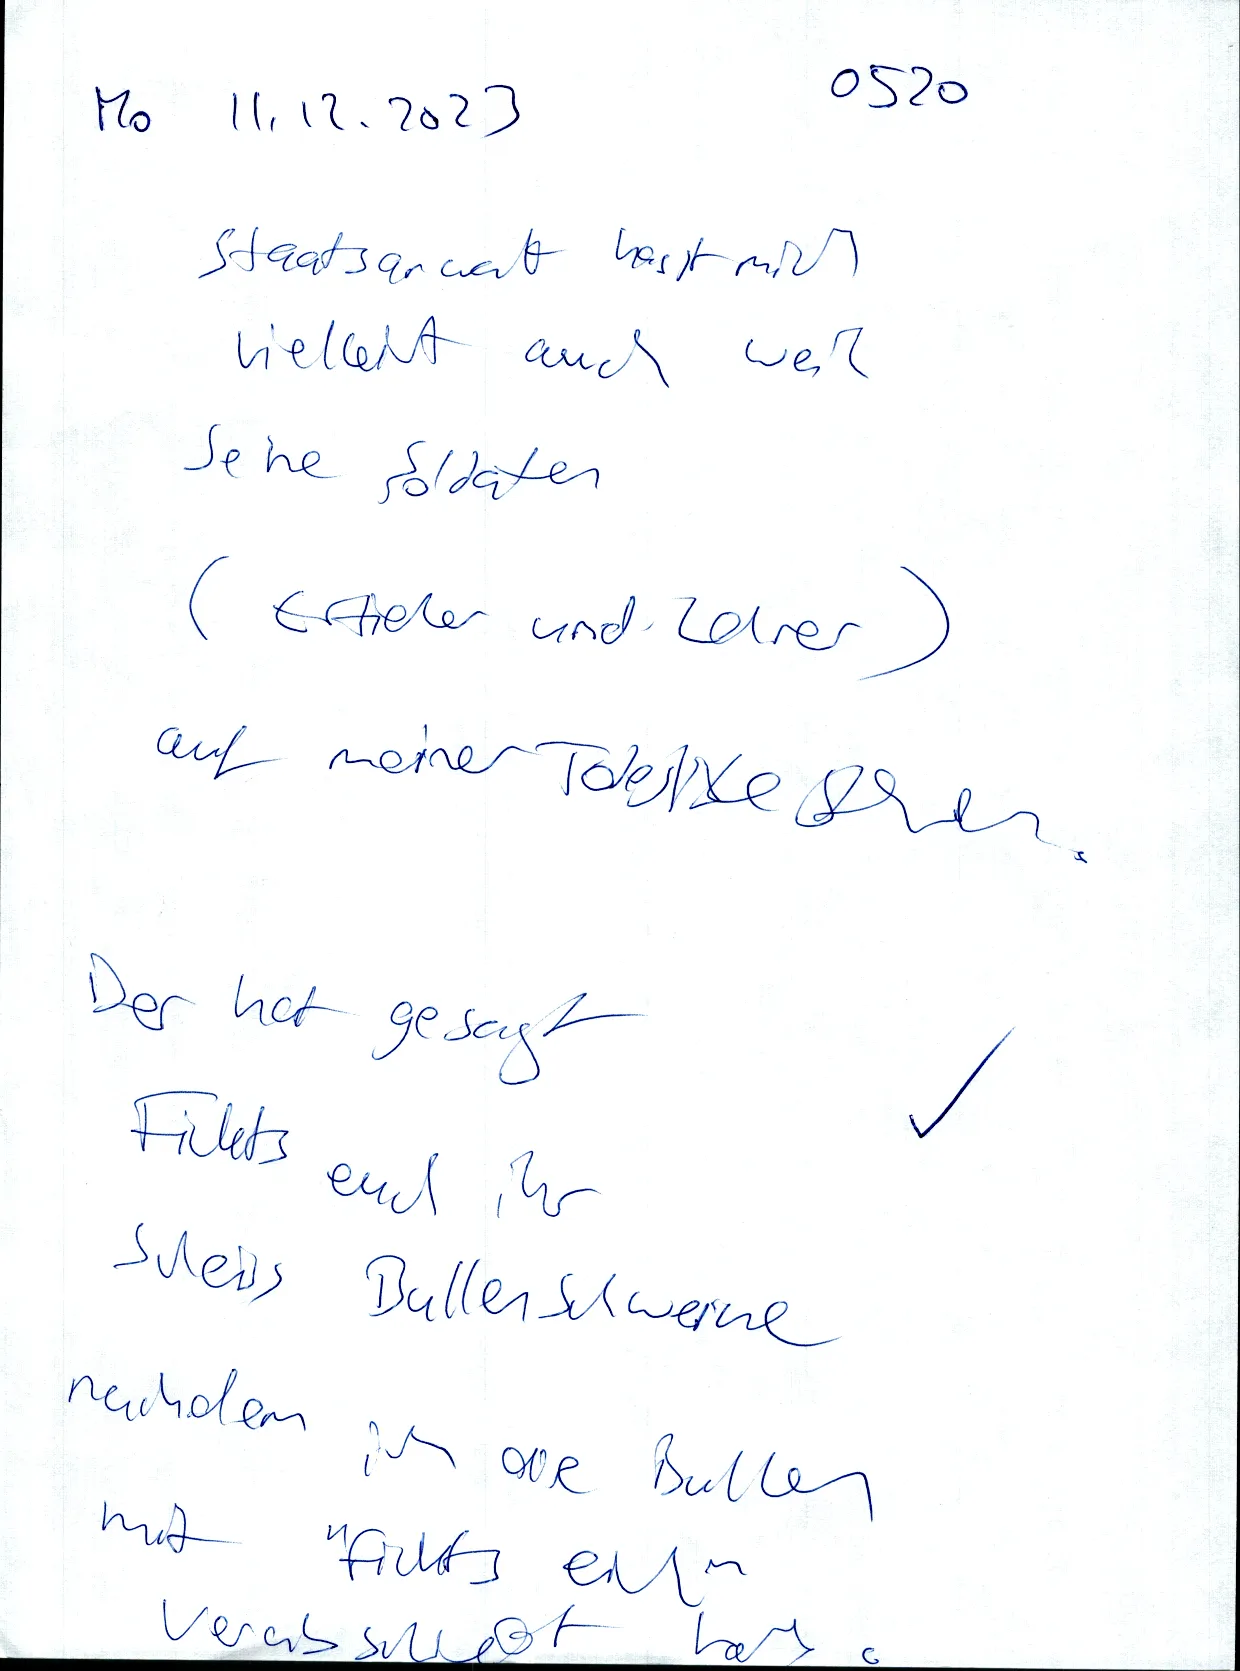 Mo 11.12.2023 0520
Staatsanwalt hasst mich
vielleicht auch weil
seine Soldaten
( und )
auf meiner Todesliste stehen.
Der hat gesagt
Fickts euch ihr
scheiss Bullenschweine
nachdem ich die Bullen
mit "Fickts euch"
verabschiedet hab.